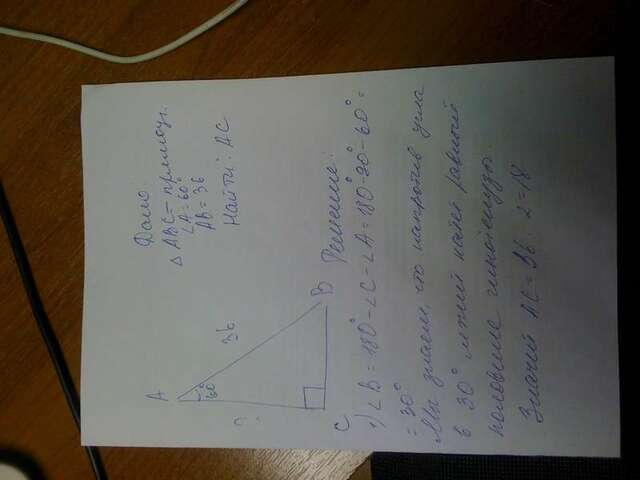 Дано:
△ABC - прямоуг.
∠A = 60°
AB = 36
Найти: AC
A
60°
36
?
C
B
Решение:
1) ∠B = 180° - ∠C - ∠A = 180° - 90° - 60° =
= 30°
Мы знаем, что напротив угла
в 30° лежит катет равный
половине гипотенузы.
Значит AC = 36 : 2 = 18